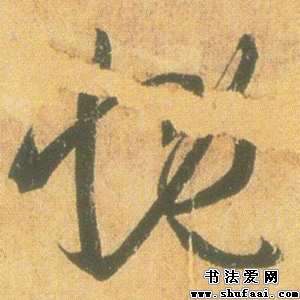 悦
书法爱网
www.shufaai.com